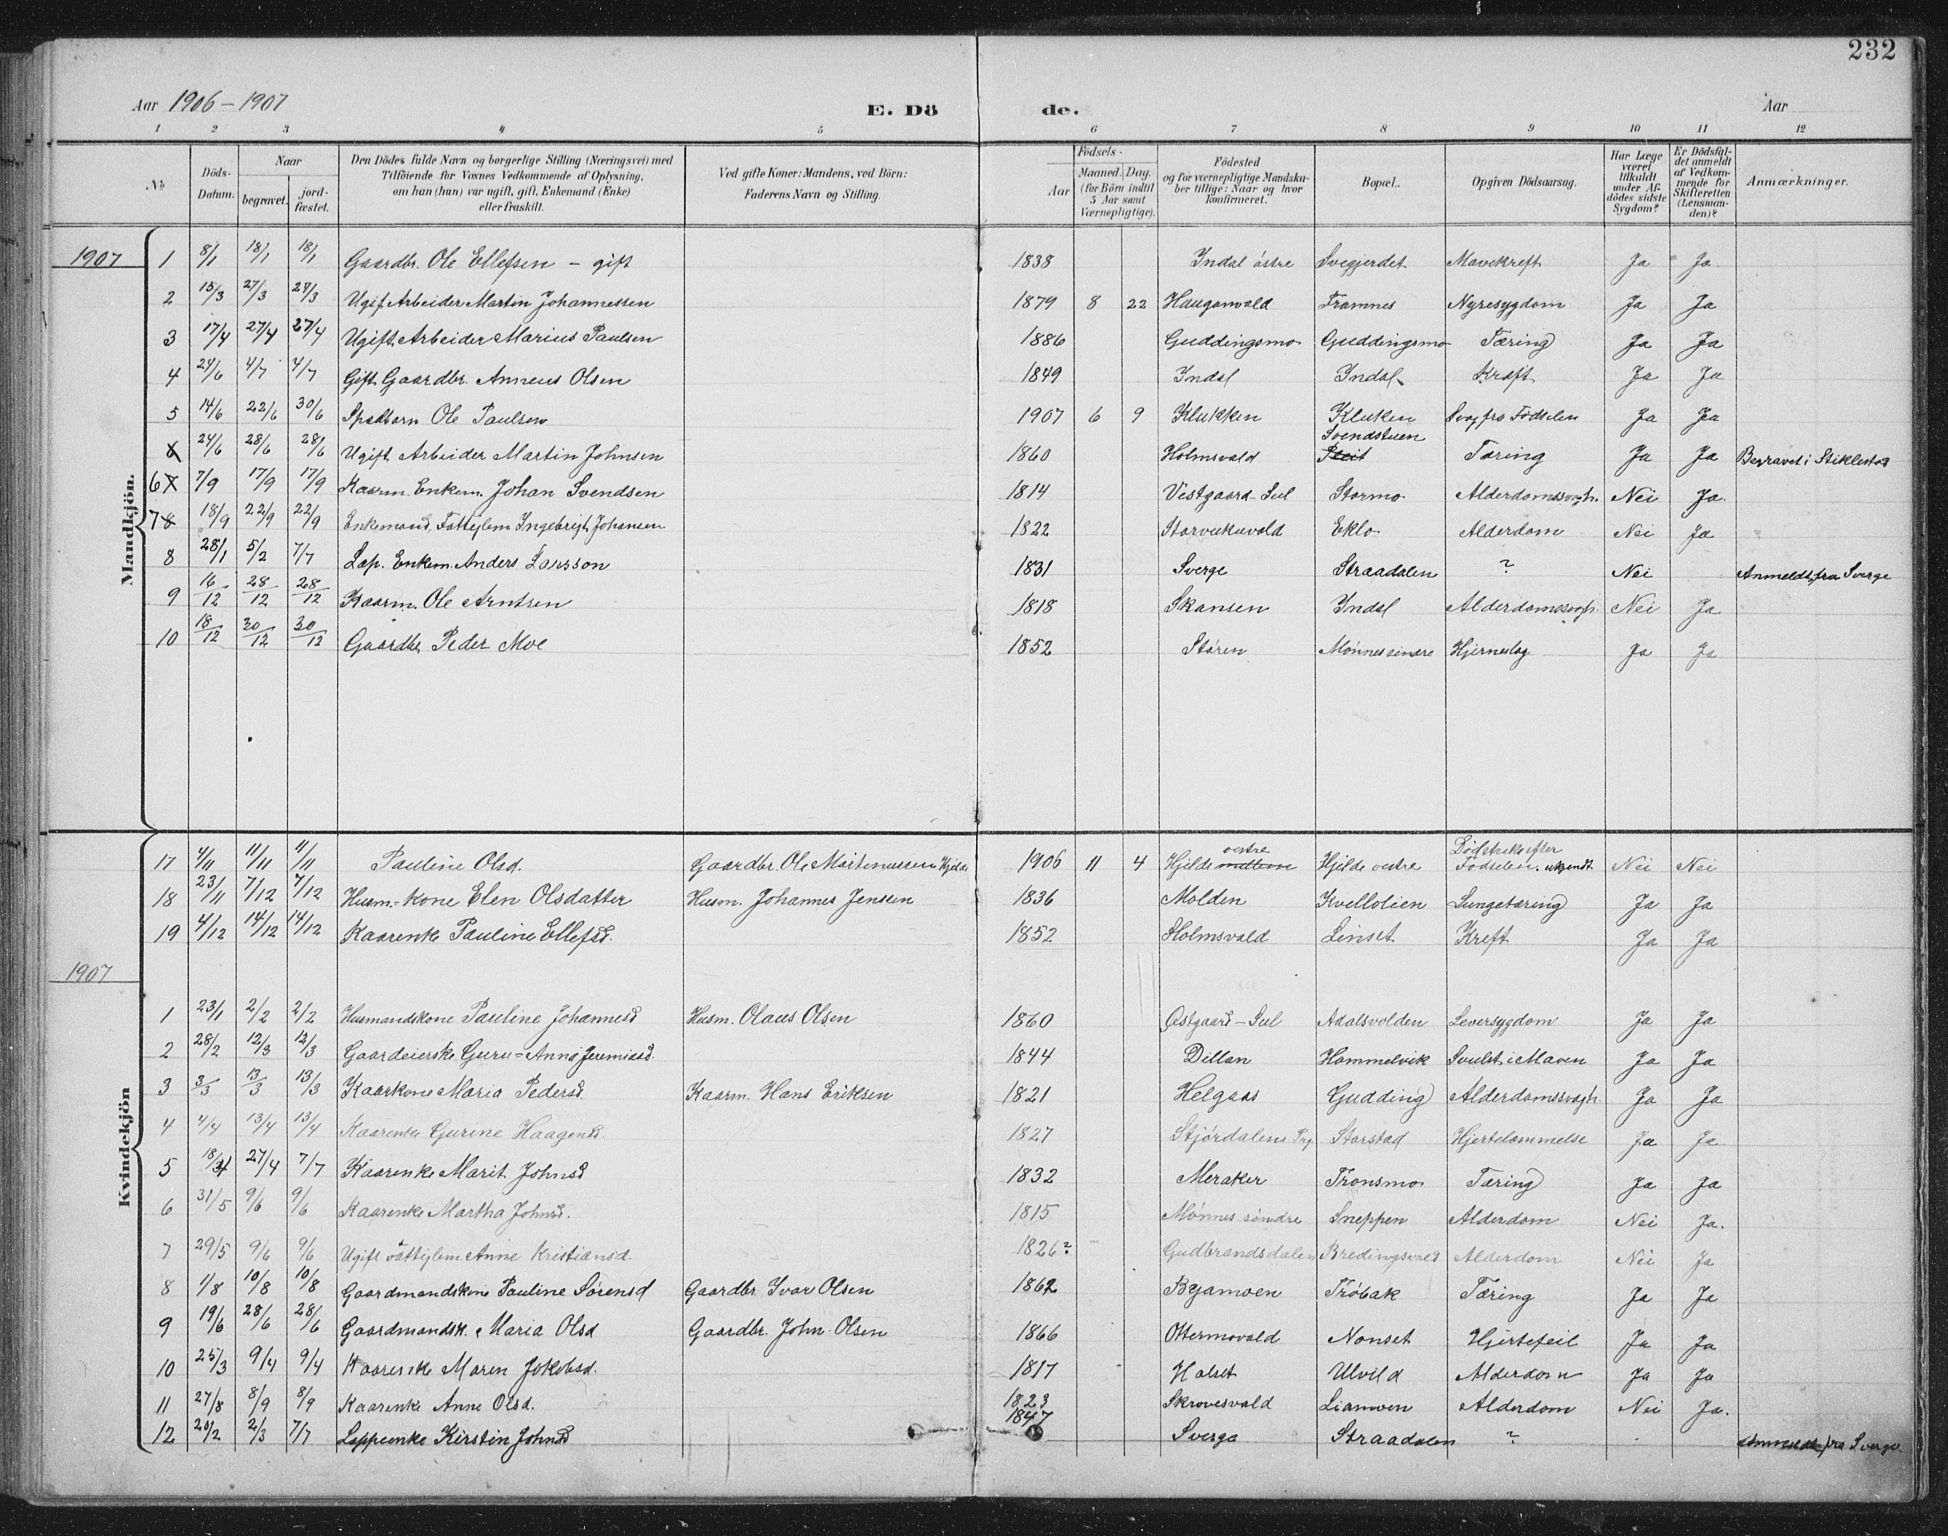 232
Aar 1906 - 1907 E. Dö de. Aar
1 2 3 4 5 6 7 8 9 10 11 12
No. Döds-Datum. Naar begravet. jordfæstet. Den Dödes fulde Navn og borgerlige Stilling (Næringsvei) med Tilföiende for Voxnes Vedkommende af Oplysning, om han (hun) var ugift, gift, Enkemand (Enke) eller fraskilt. Ved gifte Koner: Mandens, ved Börn: Faderens Navn og Stilling. Födsels- Aar Maaned. Dag. (for Börn indtil 5 Aar samt Værnepligtige). Födested og for værnepligtige Mandskaber tillige: Naar og hvor konfirmeret. Bopæl. Opgiven Dödsaarsag. Har Læge været tilkaldt under Afdödes sidste Sygdom? Er Dödsfaldet anmeldt af Vedkommende for Skifteretten (Lensmanden)? Anmærkninger.
Mandkjön.
1907 1 8/1 18/1 18/1 Gaardbr. Ole Ellefsen - gift 1838 Indal östre Svegjerdet Mavekreft Ja Ja
2 15/3 27/3 27/3 Ugift Arbeider Martin Johannessen 1879 8 22 Hauganvald Framnes Nyresygdom Ja Ja
3 17/4 27/4 27/4 Ugift Arbeider Marius Paulsen 1886 Guddingsmo Guddingsmo Tæring Ja Ja
4 24/6 4/7 4/7 Gift Gaardbr. Anneus Olsen 1849 Indal Indal Kræft Ja Ja
5 14/6 22/6 30/6 Spædbarn Ole Paulsen 1907 6 9 Klukken Kluken Svag fra Födselen Ja Ja
6 24/6 28/6 28/6 Ugift Arbeider Martin Johnsen 1860 Holmsvald Svendstuen Tæring Ja Ja Begravet i Stiklestad
6 7 7/9 17/9 17/9 Kaarm. Enkem. Johan Svendsen 1814 Vestgaard-Sul Stormo Alderdomssvagh. Nei Ja
7 8 18/9 22/9 22/9 Enkemand, Fattiglem Ingebrigt Johansen 1822 Storvukuvald Eklo Alderdom Nei Ja
8 28/1 5/2 7/7 Lap. Enkem. Anders Larsson 1831 Sverge Straadalen ? Nei Anmeldt fra Sverge
9 16/12 28/12 28/12 Kaarm. Ole Arntsen 1818 Skansen Indal Alderdomssvagh. Nei Ja
10 18/12 30/12 30/12 Gaardbr. Peder Moe 1852 Stören Mönnes söndre Hjerneslag Ja Ja
Kvindekjön
17 4/11 11/11 11/11 Pauline Olsd. Gaardbr. Ole Martenussen Hjelde 1906 11 4 Hjelde vestre Hjelde vestre Död straks efter Födselen. ukjendt Nei Nei
18 23/11 7/12 7/12 Husm.-kone Elen Olsdatter Husm. Johannes Jenssen 1836 Molden Kvellolien Lungetæring Ja Ja
19 4/12 14/12 14/12 Kaarenke Pauline Ellefsd. 1852 Holmsvald Linset Kreft Ja Ja
1907
1 23/1 2/2 2/2 Husmandskone Pauline Johannesd Husm. Olaus Olsen 1860 Østgaard-Sul Adalsvolden Leversygdom Ja Ja
2 28/2 12/3 12/3 Gaardeierske Guru-Anna Jeremiasd. 1844 Dillan Hammelvik Svulst i Maven Ja Ja
3 3/3 13/3 13/3 Kaarkone Maria Pedersd. Kaarm. Hans Eriksen 1821 Helgaas Gudding Alderdomssvagh. Ja Ja
4 4/4 13/4 13/4 Kaarenke Gurine Haagensd. 1827 Stjördalens Prg Storstad Hjertelammelse Ja Ja
5 18/4 27/4 7/7 Kaarenke Marit Johnsd 1832 Meraker Tronsmo Tæring Ja Ja
6 31/5 9/6 9/6 Kaarenke Martha Johnsd. 1815 Mönnes söndre Sneppen Alderdom Nei Ja.
7 29/5 9/6 9/6 Ugift fattiglem Anne Kristiansd. 1826? Gudbrandsdalen Bredingsvald Alderdom Nei Ja
8 1/8 10/8 10/8 Gaardmandskone Pauline Sörensd Gaardbr. Ivar Olsen 1862 Byamoen Tröbak Tæring Ja Ja
9 19/6 28/6 28/6 Gaardmandsk. Maria Olsd Gaardbr. John Olsen 1866 Ottermovald Nonset Hjertefeil Ja Ja
10 25/3 9/4 9/4 Kaarenke Maren Jakobsd. 1817 Halset Ulvild Alderdom Ja Ja
11 27/8 8/9 8/9 Kaarenke Anne Olsd. 1823 Skrovesvald Liamoen Alderdom Nei Ja.
12 20/2 2/3 7/7 Lappeenke Kirstin Johnsd 1847 Sverge Straadalen ? Anmeldt fra Sverge.